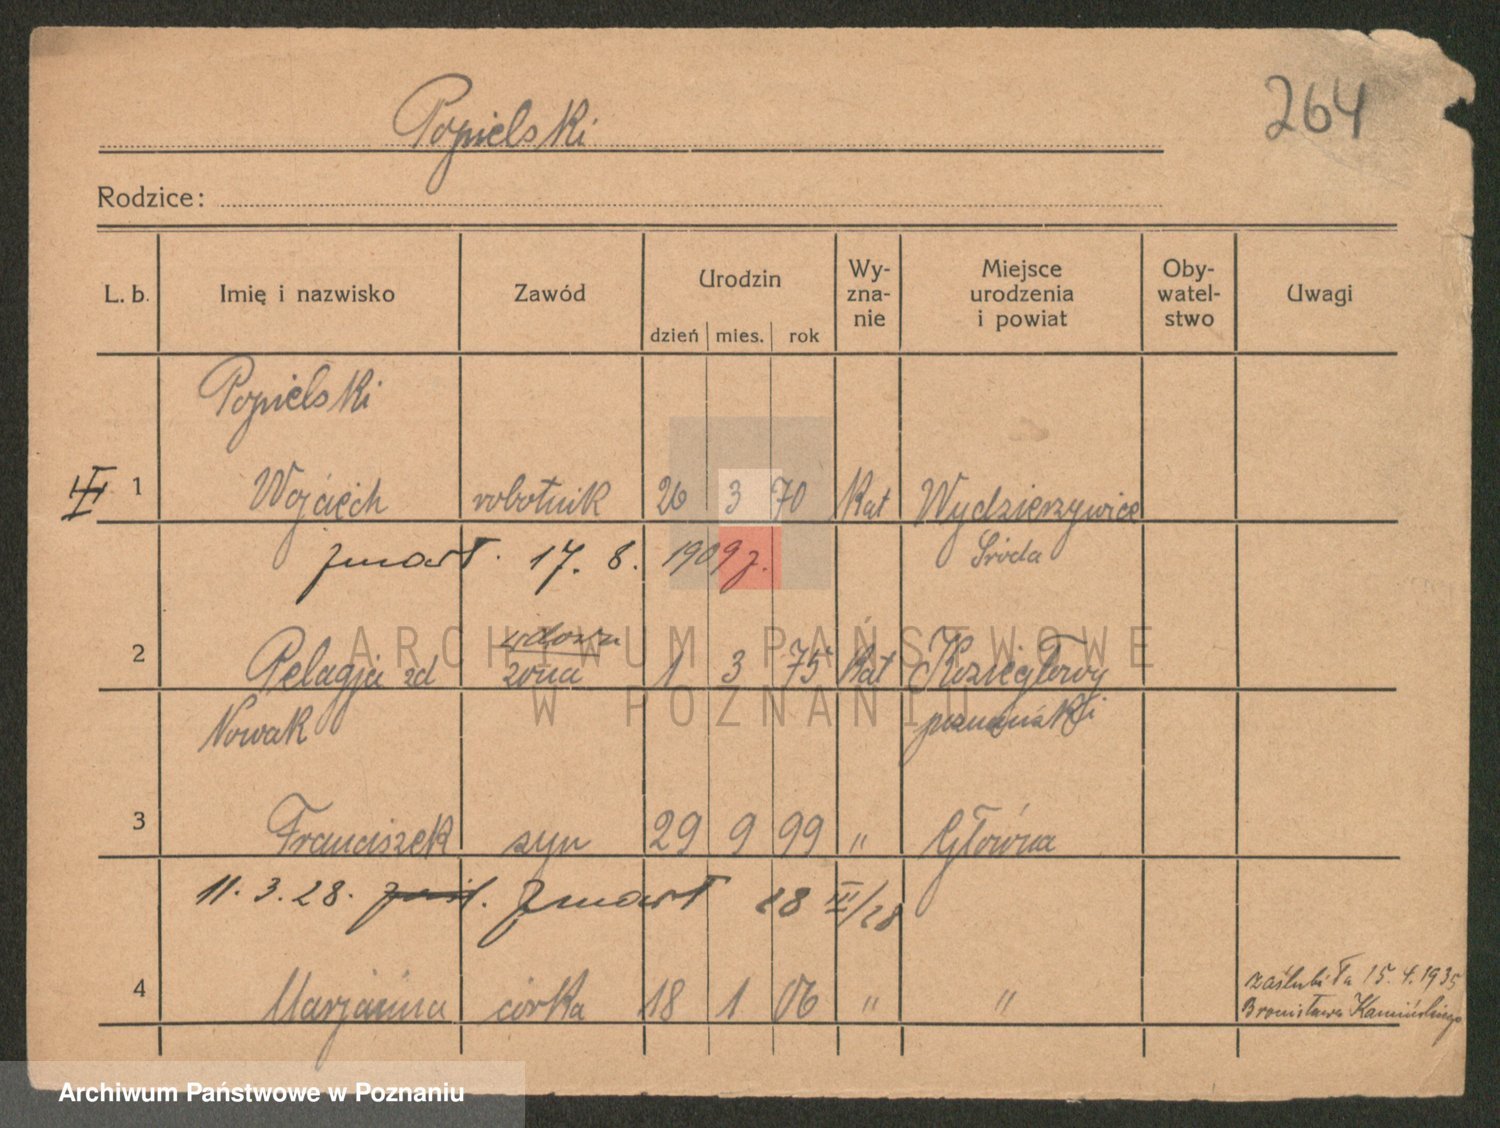 264
Popielski
Rodzice:
L. b. Imię i nazwisko Zawód Urodzin dzień mies. rok Wy-zna-nie Miejsce urodzenia i powiat Oby-watel-stwo Uwagi
Popielski
1 Wojciech robotnik 26 3 70 Kat Wydzierzywice
zmarł. 17. 8. 1909 r. Środa
wdowa
2 Pelagja zd żona 1 3 75 Kat Koziegłowy
Nowak poznański
3 Franciszek syn 29 9 99 " Główna
11. 3. 28. zmarł 28 III/28
zaślubiła 15. 4. 1935
4 Marjanna córka 18 1 06 " " Bronisława Kamińskiego
ARCHIWUM PAŃSTWOWE
W POZNANIU
Archiwum Państwowe w Poznaniu